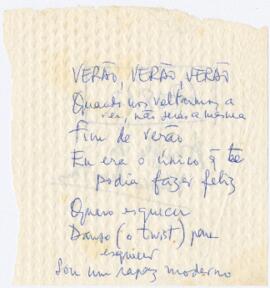 VERÃO, VERÃO, VERÃO
Quando nos voltarmos a
ver, não serás a mesma
Fim de verão
Eu era o único q te
podia fazer feliz
Quero esquecer
Danço (o twist) para
esquecer
Sou um rapaz moderno